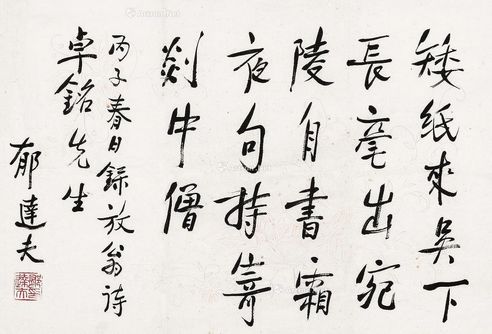 矮紙來吳下
長毫出宛
陵自書霜
夜句持寄
剡中僧
丙子春日錄放翁詩
卓銘先生
郁達夫